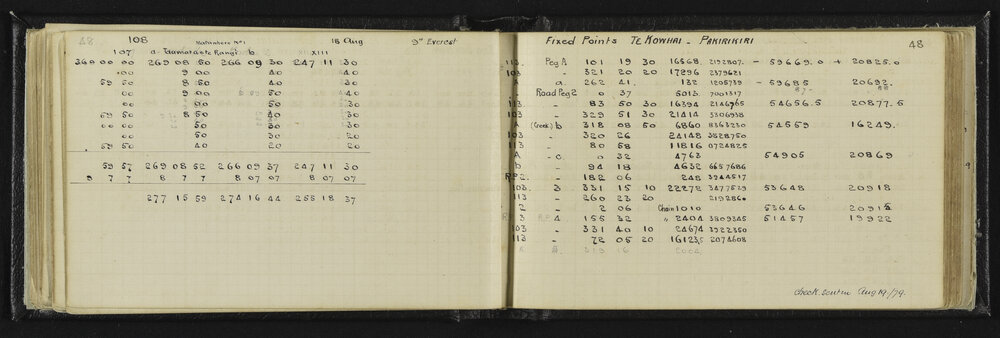 48 108 18 Aug 9" Everest
107 a- Taamataate Rangi b XIII
369 00 00 269 08 50 266 09 30 247 11 30
00 9 00 40 40
59 50 8 50 40 30
00 9 00 40 40
00 50 30 30
59 50 8 50 30 30
00 00 50 30 30
00 50 30 20
59 50 40 20 20
59 57 269 08 52 266 09 37 247 11 30
9 7 7 8 7 7 8 07 07 8 07 07
277 15 59 274 16 44 255 18 37
Fixed Points Te Kowhai - Pakirikiri 48
113. Peg A 101 19 30 16568. 2192807. - 59669.0 + 20825.0
103 " 321 20 20 17296 2379621
A a. 262 41. 132 1205739 - 59685 20692.
- Road Peg 2 0 37 5013. 7001317
113. - 83 50 30 16394 2146765 54656.5 20877.5
103 - 329 51 30 21414 3306938
A (Creek) b 318 08 50 6860 8363230 54559 16249.
103 - 320 26 24148 3828750
113 - 80 58 11816 0724825
A - c 0 32 4763 54905 20869
b - 94 18 4632 6657686
RP2. - 182 06 248 3944517
103. 3 331 15 10 22272 3477529 53648 20918
113 - 260 23 20 2192860
2 - 2 06 Chain 1010 53646 20915
3 R.P. 4 155 32 " 2404 3809345 51457 19922
103 - 331 40 10 24674 3922350
113 - 72 05 20 16123.5 2074608
A 4. 313 16 2004
Aug 19/79.